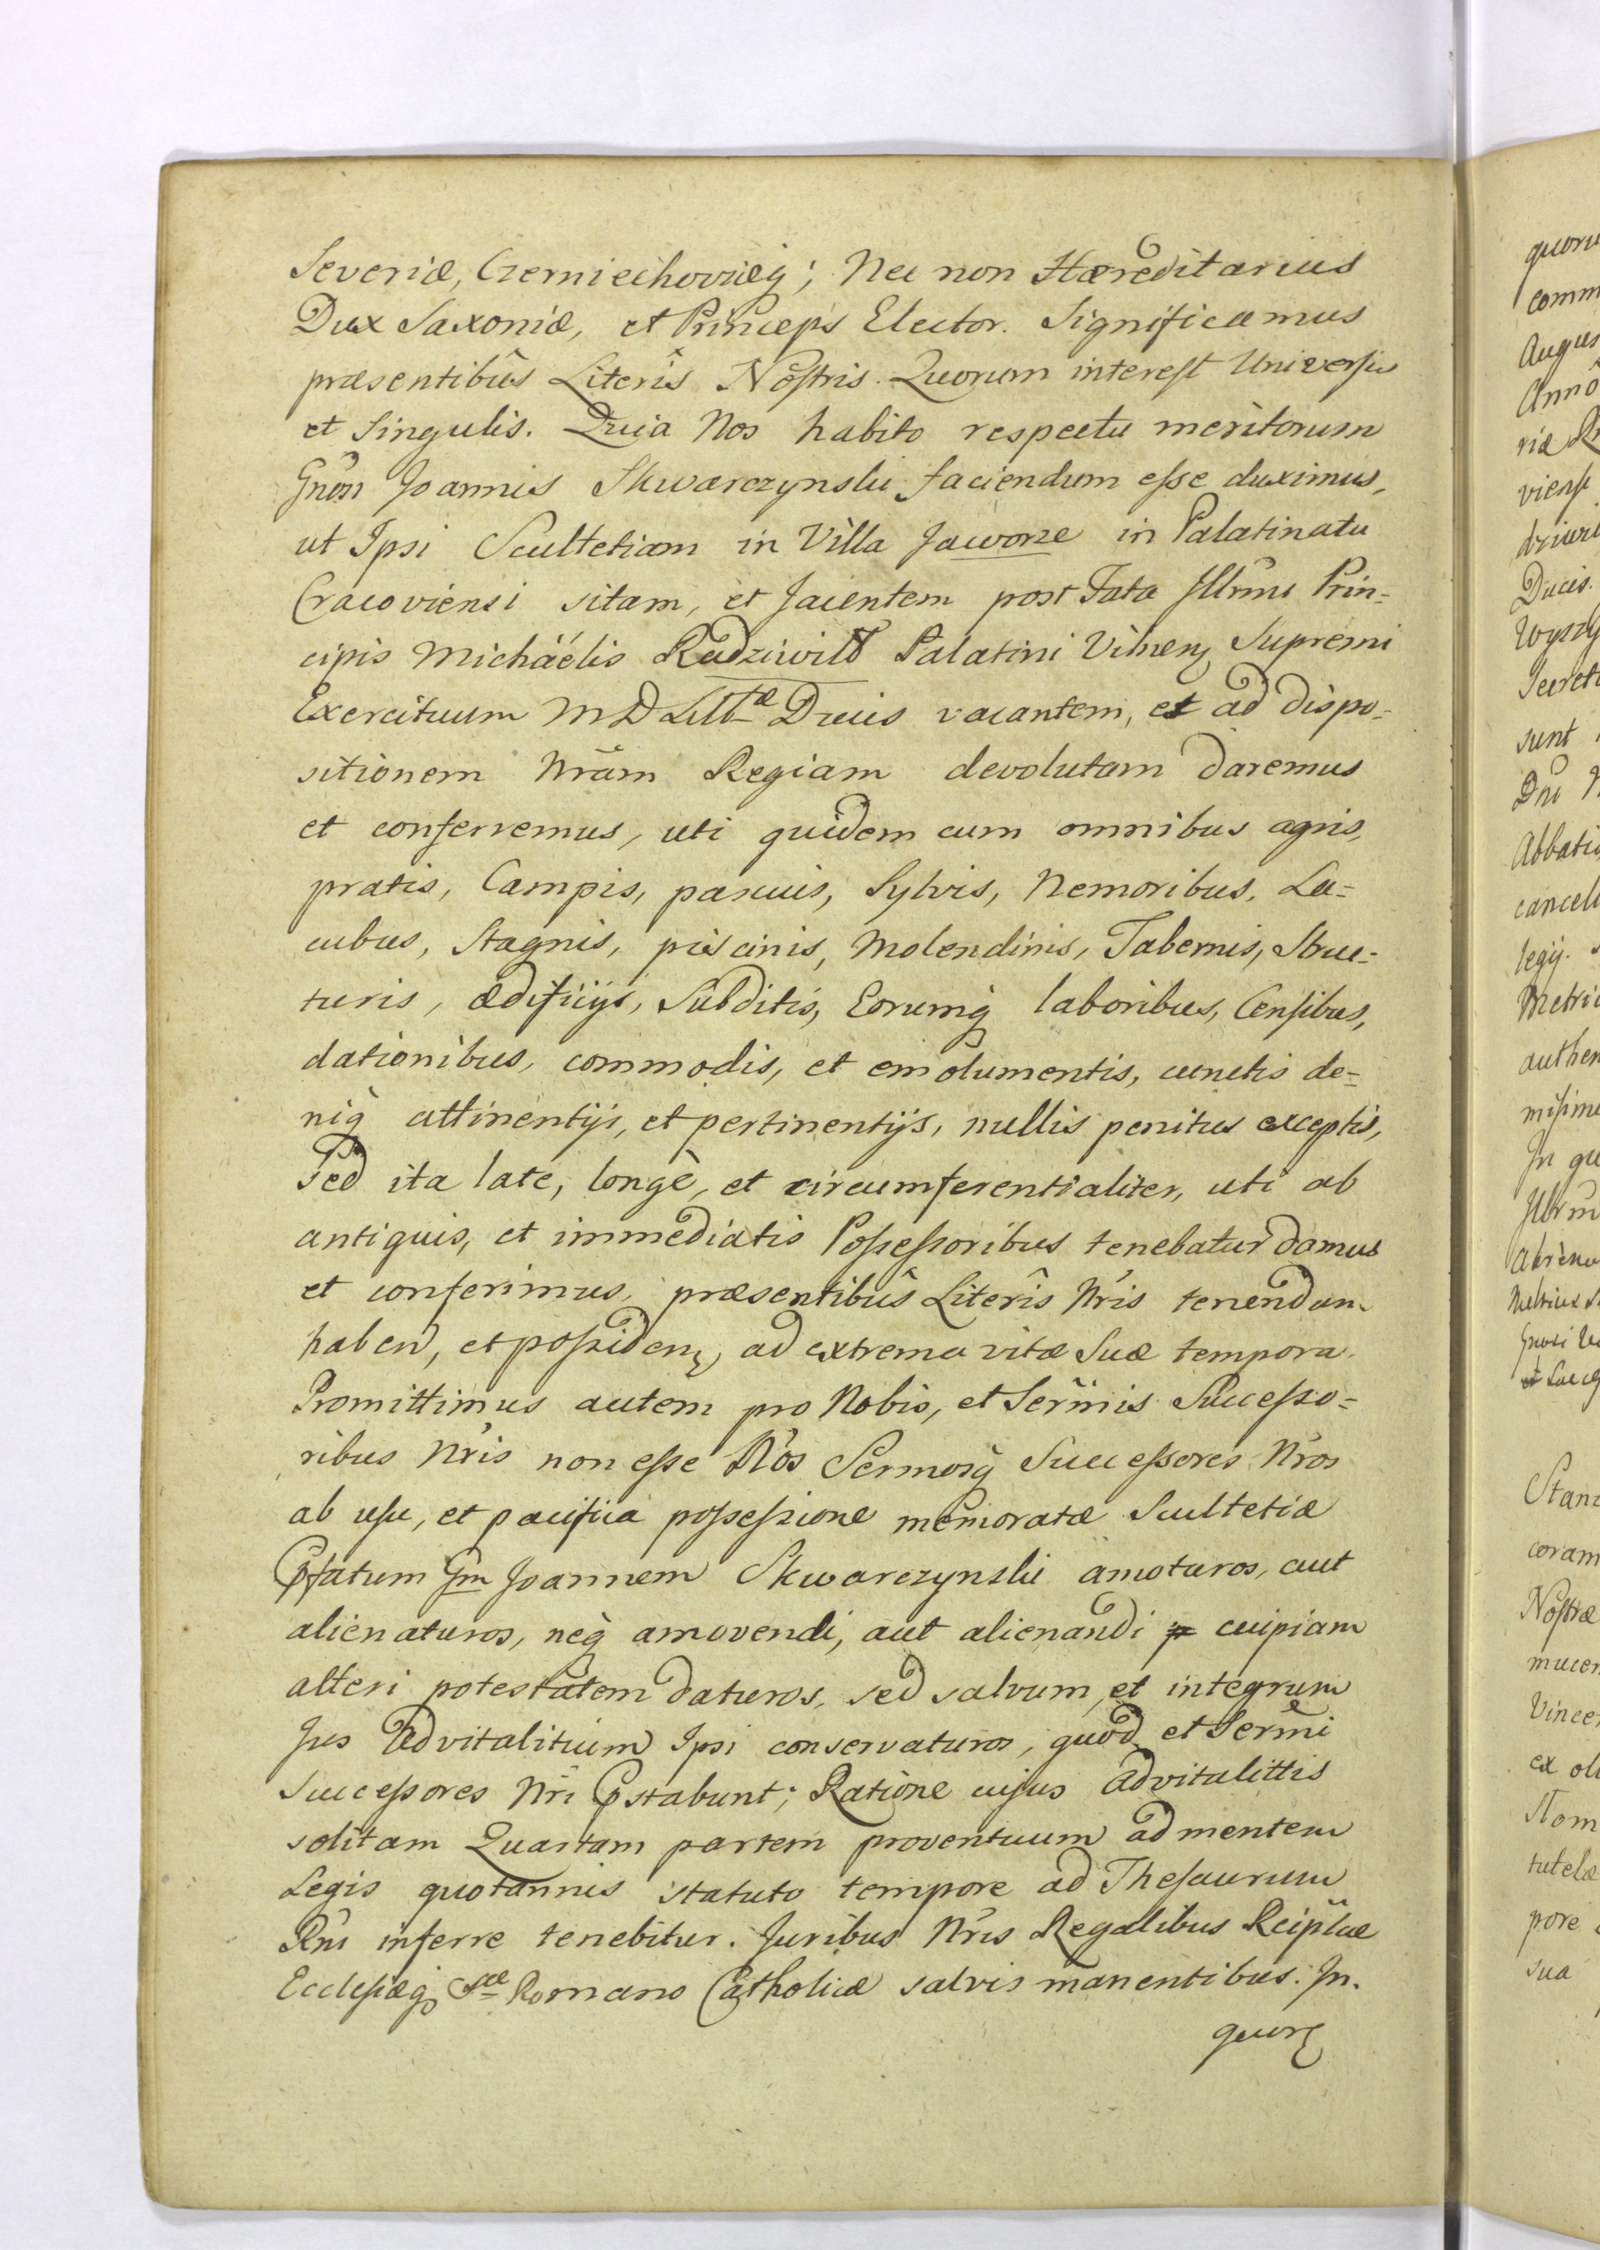 Severiæ, Czerniechoviæq; Nec non Hæreditarius
Dux Saxoniæ, et Princeps Elector. Significamus
præsentibûs Literîs Nostris. Quorum interest Universis
et Singulis. Quia Nos habito respectu meritorum
Gnôsi Joannis Skwarczynski faciendum esse duximus,
ut Ipsi Scultetiam in Villa Jaworze in Palatinatu
Cracoviensi sitam, et Jacentem post Fata Illrmi Prin-
cipis Michäélis Radziwiłł Palatini Vilnen, Supremi
Exercituum M D Litt Ducis vacantem, et ad dispo-
sitionem Nrãm Regiam devolutam daremus
et conferremus, uti quidem cum omnibus agris,
pratis, Campis, pascuis, Sylvis, Nemoribus, La-
cubus, Stagnis, piscinis, Molendinis, Tabernis, Struc-
turis, ædificijs, Subditis, Eorumq laboribus, Censibus,
dationibus, commodis, et emolumentis, cunctis de-
niq attinentijs, et pertinentijs, nullis penitus exceptis,
Sed ita late, longè, et circumferentialiter, uti ab
antiquis, et immediatis Possessoribus tenebatur damus
et conferimus, præsentibûs Literîs Nris tenendam
haben, et possiden, ad extrema vitæ Suæ tempora.
Promittimus autem pro Nobis, et Serm̃is Successo-
ribus Nris non esse Nos Sermosq Successores Nros
ab usu, et pacifica possessione memoratæ Scultetiæ
Pfatum Gm Joannem Skwarczynski amoturos, aut
alienaturos, neq amovendi, aut alienandi cuipiam
alteri potestatem daturos, sed salvum et integrum
Jus Advitalitium Ipsi conservaturos, quod et Sermi
Successores Nri Pstabunt; Ratione cujus Advitalittis
solitam Quartam partem proventuum ad mentem
Legis quotannis statuto tempore ad Thesaurum
Rni inferre tenebitur. Juribus Nris Regalibus Reiplicæ
Ecclesiæq Stæ Romano Catholicæ salvis manentibus. In.
quor
quoru
comm
Augus
Annô
riæ
viens
Ducis.
Wyszg
Secret
sunt
Dni N
Abbati
cancell
legij.
Metric
authen
misimu
In qu
Illrm
Stanz
coram
Nostræ
mucen
Vincen
ex oli
Nom
tutelæ
pore
sua